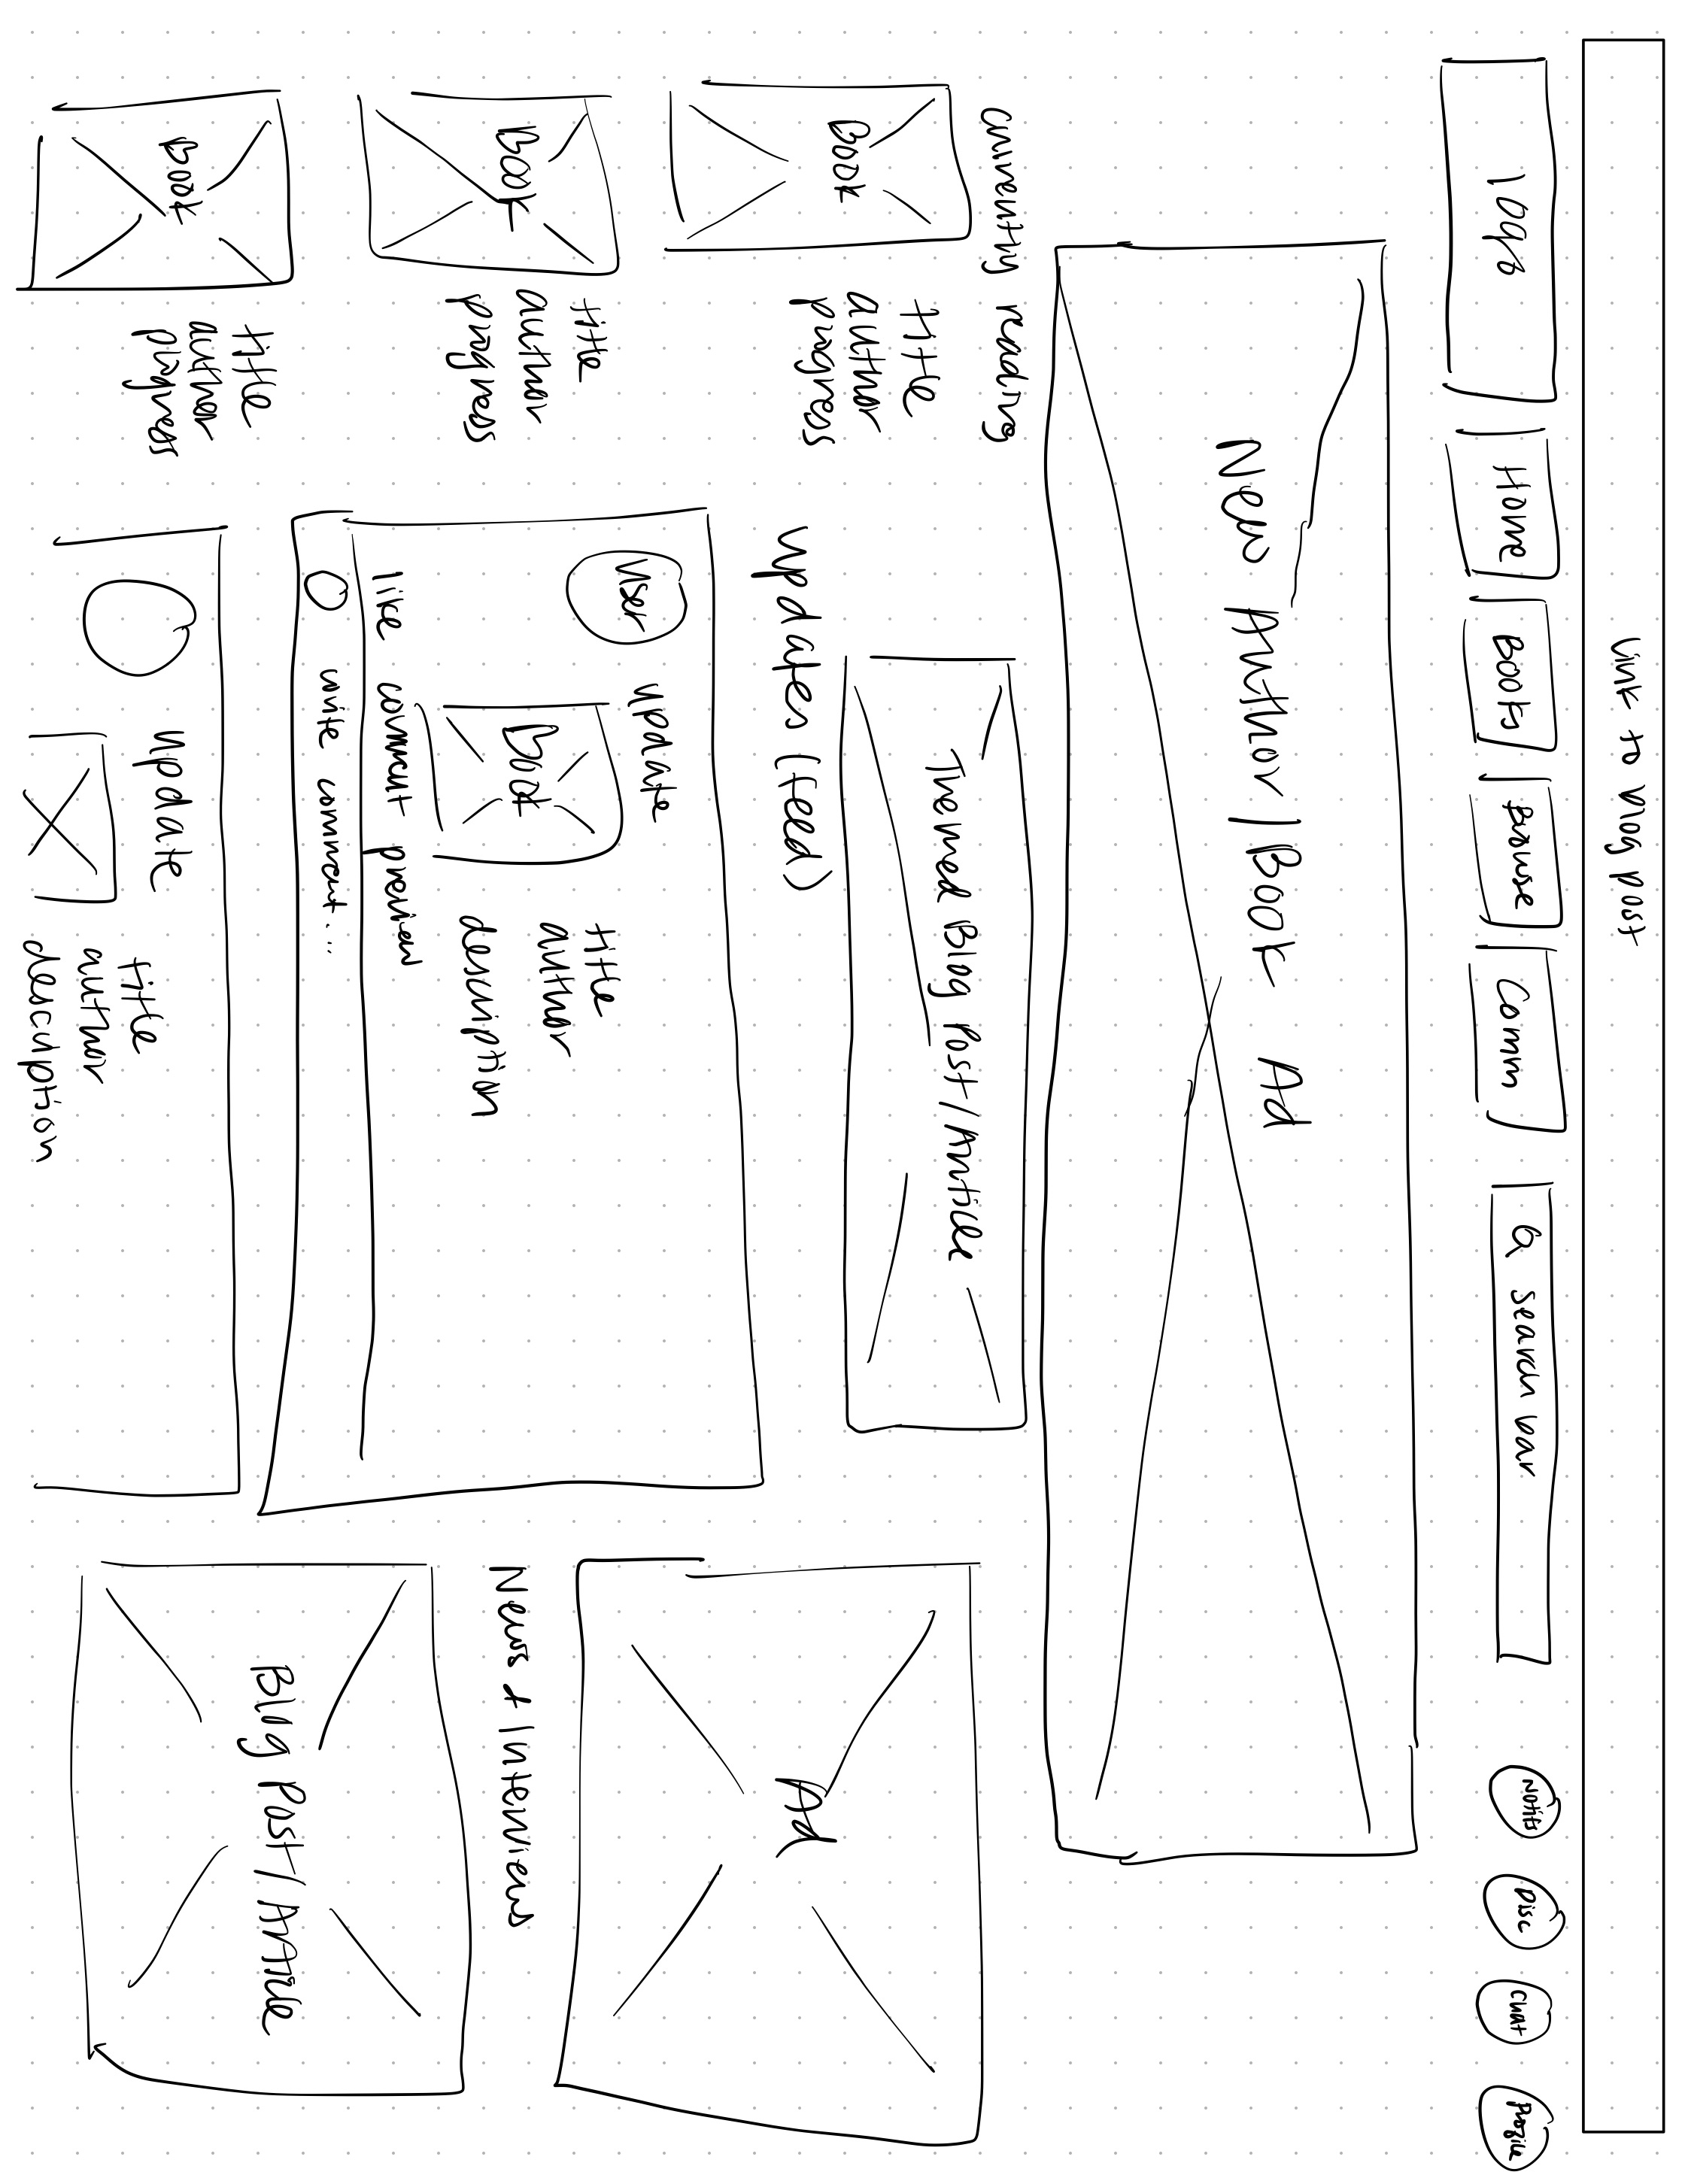 Link to blog post
Logo
Home
Books
Browse
Comm
search bar
Notifs
Disc
Chat
Profile
New Author/Book Ad
currently reading
Book
title
author
progress
Book
title
author
progress
Book
title
author
progress
Themed Blog Post/Article
updates (feed)
User
update
Book
title
author
description
like comment preview
write comment...
update
title
author
description
Ad
News + Interviews
Blog Post/Article